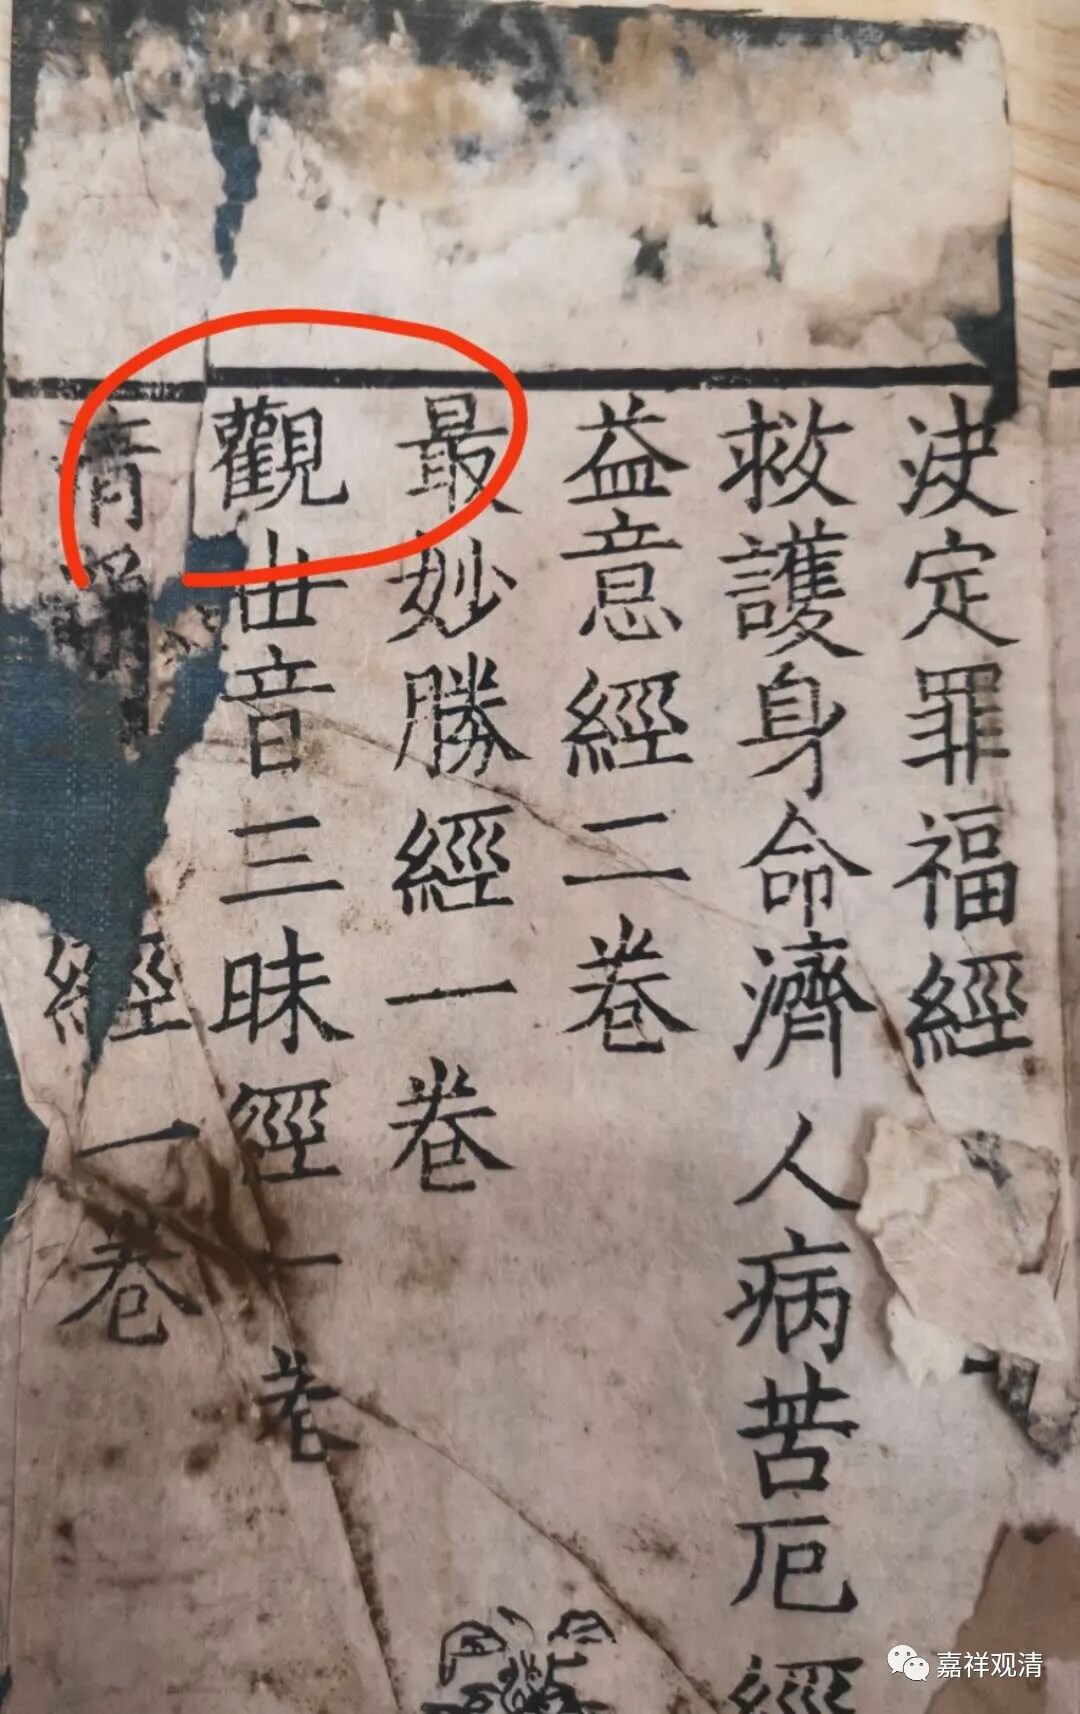 決定罪福經
救護身命濟人病苦厄經
益意經二卷
最妙勝經一卷
觀世音三昧經一卷
清淨經一卷
嘉祥观清